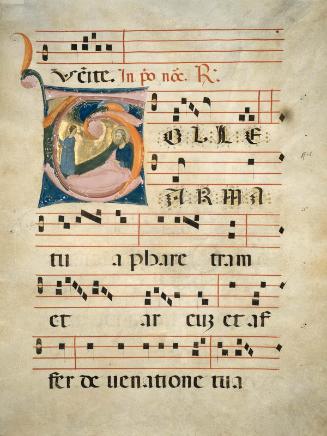 Venite. In pº noc̄. R.
TOLLE
ARMA
tu a phare tram
et ar cuz et af
fer de uenatione tua